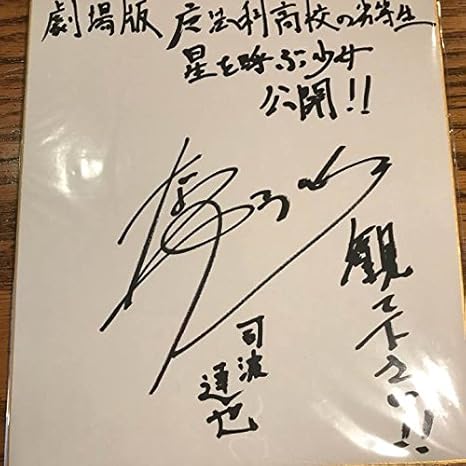 劇場版 魔法科高校の劣等生
星を呼ぶ少女
公開!!
観て下さい!!
司波
達也